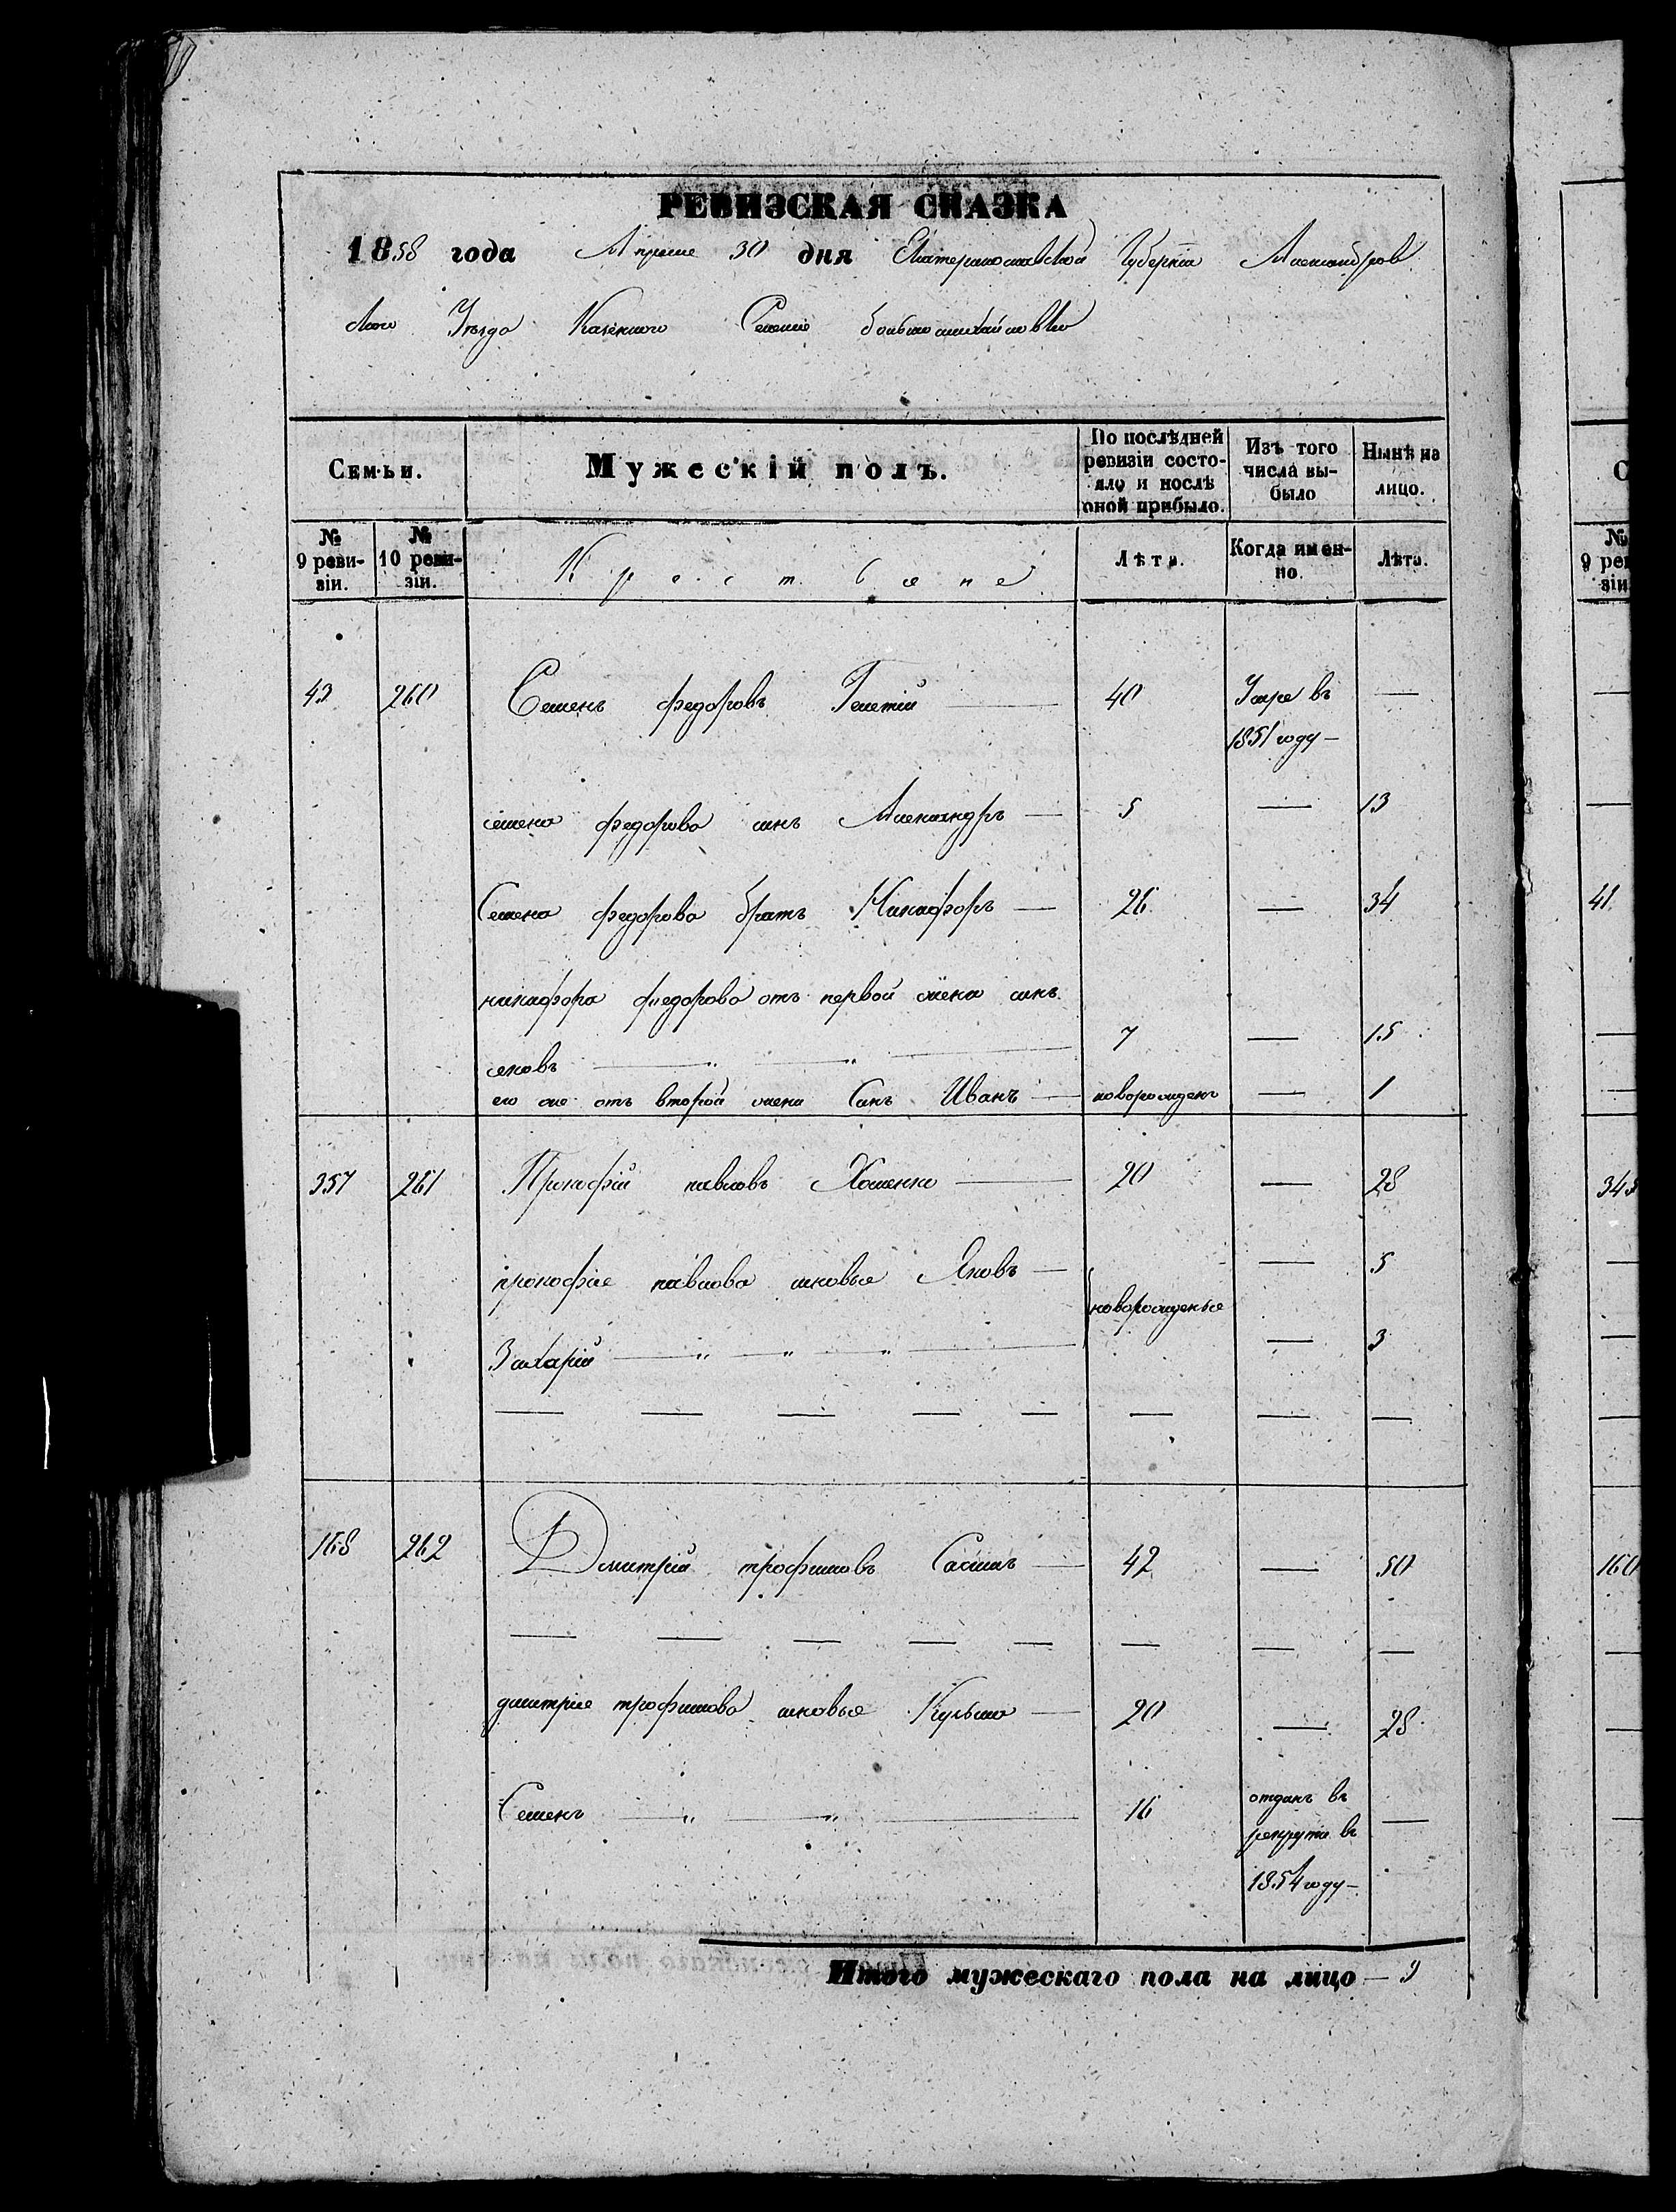 РЕВИЗСКАЯ СКАЗКА
1858 года Апреле 30 дня Екатеринославской Губернiи Александров
ского Уезда Казенного Селение большомихайловки
Семьи. Мужескiй полъ. По послѣдней ревизiи состояло и послѣ оной прибыло. Изъ того числа выбыло Нынѣ на лицо.
№ 9 ревизiи. № 10 ревизiи. Крестьяне Лѣта. Когда именно. Лѣта.
43 260 Семенъ федоровъ 40 Умре въ —
1851 году —
семена федорова синъ Александръ — 5 — 13
Семена федорова братъ Никифоръ — 26 — 34
никифора федорова отъ первой жени синъ
яковъ — „ — „ — 7 — 15
его же отъ второй жени Синъ Иванъ — новорожденъ — 1
357 261 Прокофiй павловъ Хоменко — 20 — 28
прокофiе павлова синовья Яковъ — новорожденые — 5
Захарiй — „ — „ — „ — — 3
— — — — — — — —
168 262 Дмитрiй трофимовъ — 42 — 50
— — — — — — — —
дмитрие трофимова синовья Кузьма — 20 — 28
Семенъ — „ — „ — 16 отданъ въ —
рекрути въ
1854 году —
Итого мужескаго пола на лицо — 9
9 реви
зiи
41
343
160